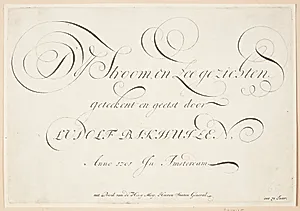 D'Y Stroom, en Zee gezichten,
Geteekent en geetst door
LUDOLF BAKHUIZEN.
Anno 1701 In Amsterdam
met Privil. van de Hoog Mog. Heeren Staten Generael.